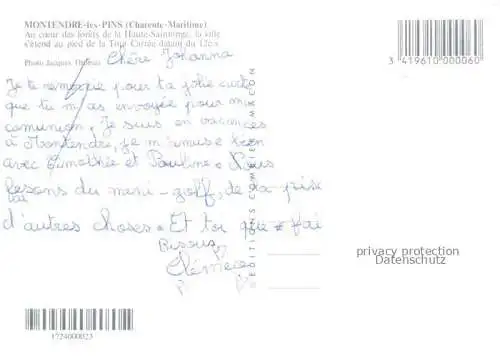 MONTENDRE-les-PINS (Charente-Maritime)
Au cœur des forêts de la Haute-Saintonge, la ville
s'étend au pied de la Tour Carrée datant du 12e s
Photo Jacques
Chère Johanna
Je te remercie pour ta jolie carte
que tu m'as envoyée pour ma
comunion. Je suis en vacances
à Montendre, je m'amuse bien
avec Timothée et Pauline. Nous
fesons du mini-golf, de la pis
d'autres choses. Et toi que fai
tai
Bisous
Clémence
EDITIONS COMBIER MACON
3 419610 000060
privacy protection
Datenschutz
1724000023